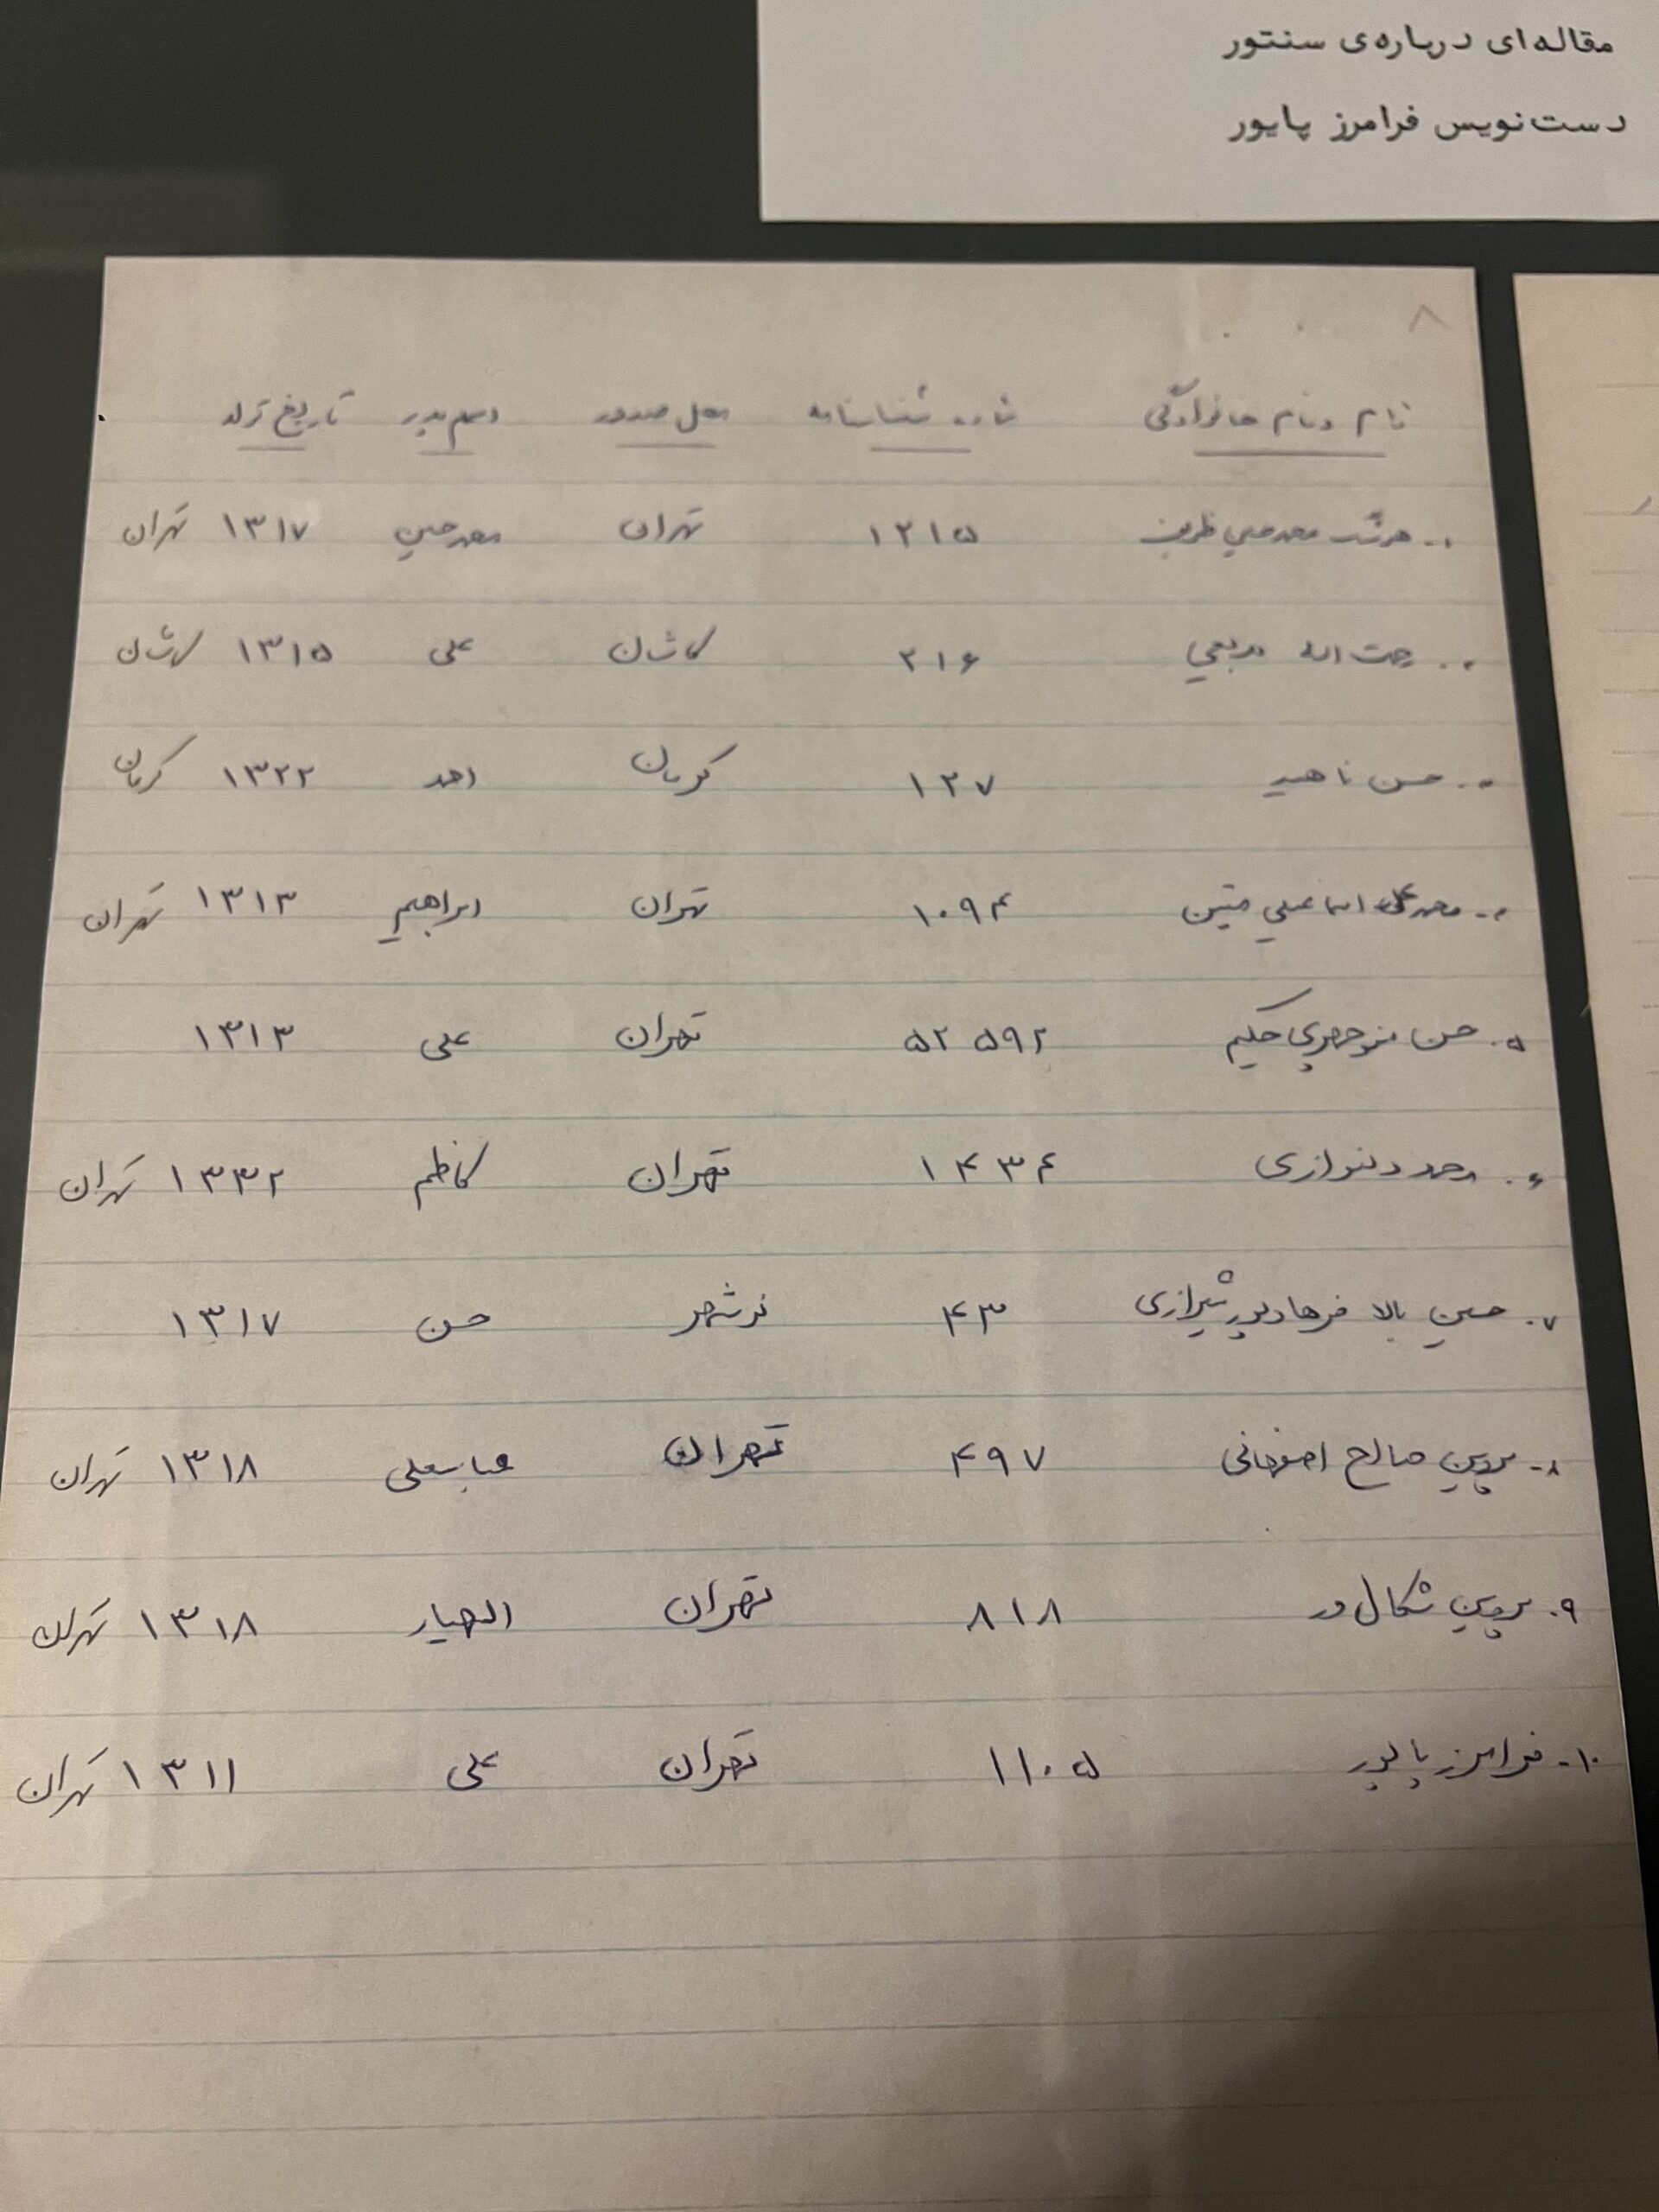 مقاله‌ای درباره‌ی سنتور
دست‌نویس فرامرز پایور
۸
نام و نام خانوادگی شماره شناسنامه محل صدور اسم پدر تاریخ تولد
هوشنگ محمدحسین ظریف ۱۲۱۵ تهران محمدحسین ۱۳۱۷ تهران
رحمت الله بدیعی ۲۱۶ کاشان علی ۱۳۱۵ کاشان
حسن ناهید ۱۲۷ کرمان احمد ۱۳۲۲ کرمان
محمدعلی اسماعیلی متین ۱۰۹۴ تهران ابراهیم ۱۳۱۳ تهران
۵- حسن منوچهری حکیم ۵۲۵۹۲ تهران علی ۱۳۱۳
۶- محمد دلنوازی ۱۴۳۴ تهران کاظم ۱۳۳۲ تهران
۷- حسین بالا فرهادپور شیرازی ۴۳ نوشهر حسن ۱۳۱۷
۸- پروین صالح اصفهانی ۴۹۷ تهران عباسعلی ۱۳۱۸ تهران
۹- پروین شکال ور ۸۱۸ تهران الهیار ۱۳۱۸ تهران
۱۰- فرامرز پایور ۱۱۰۵ تهران علی ۱۳۱۱ تهران